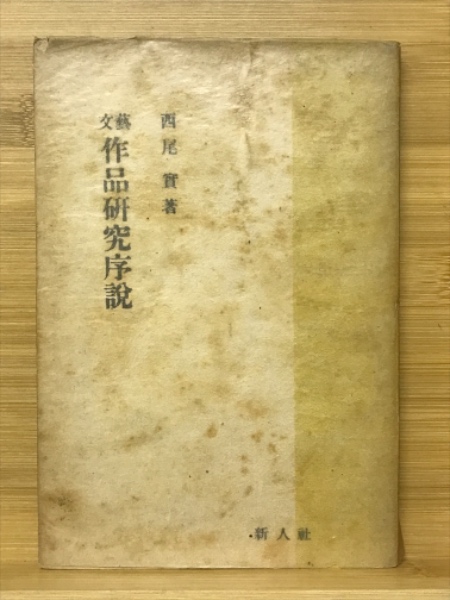 西尾實著
文藝
作品研究序說
新人社